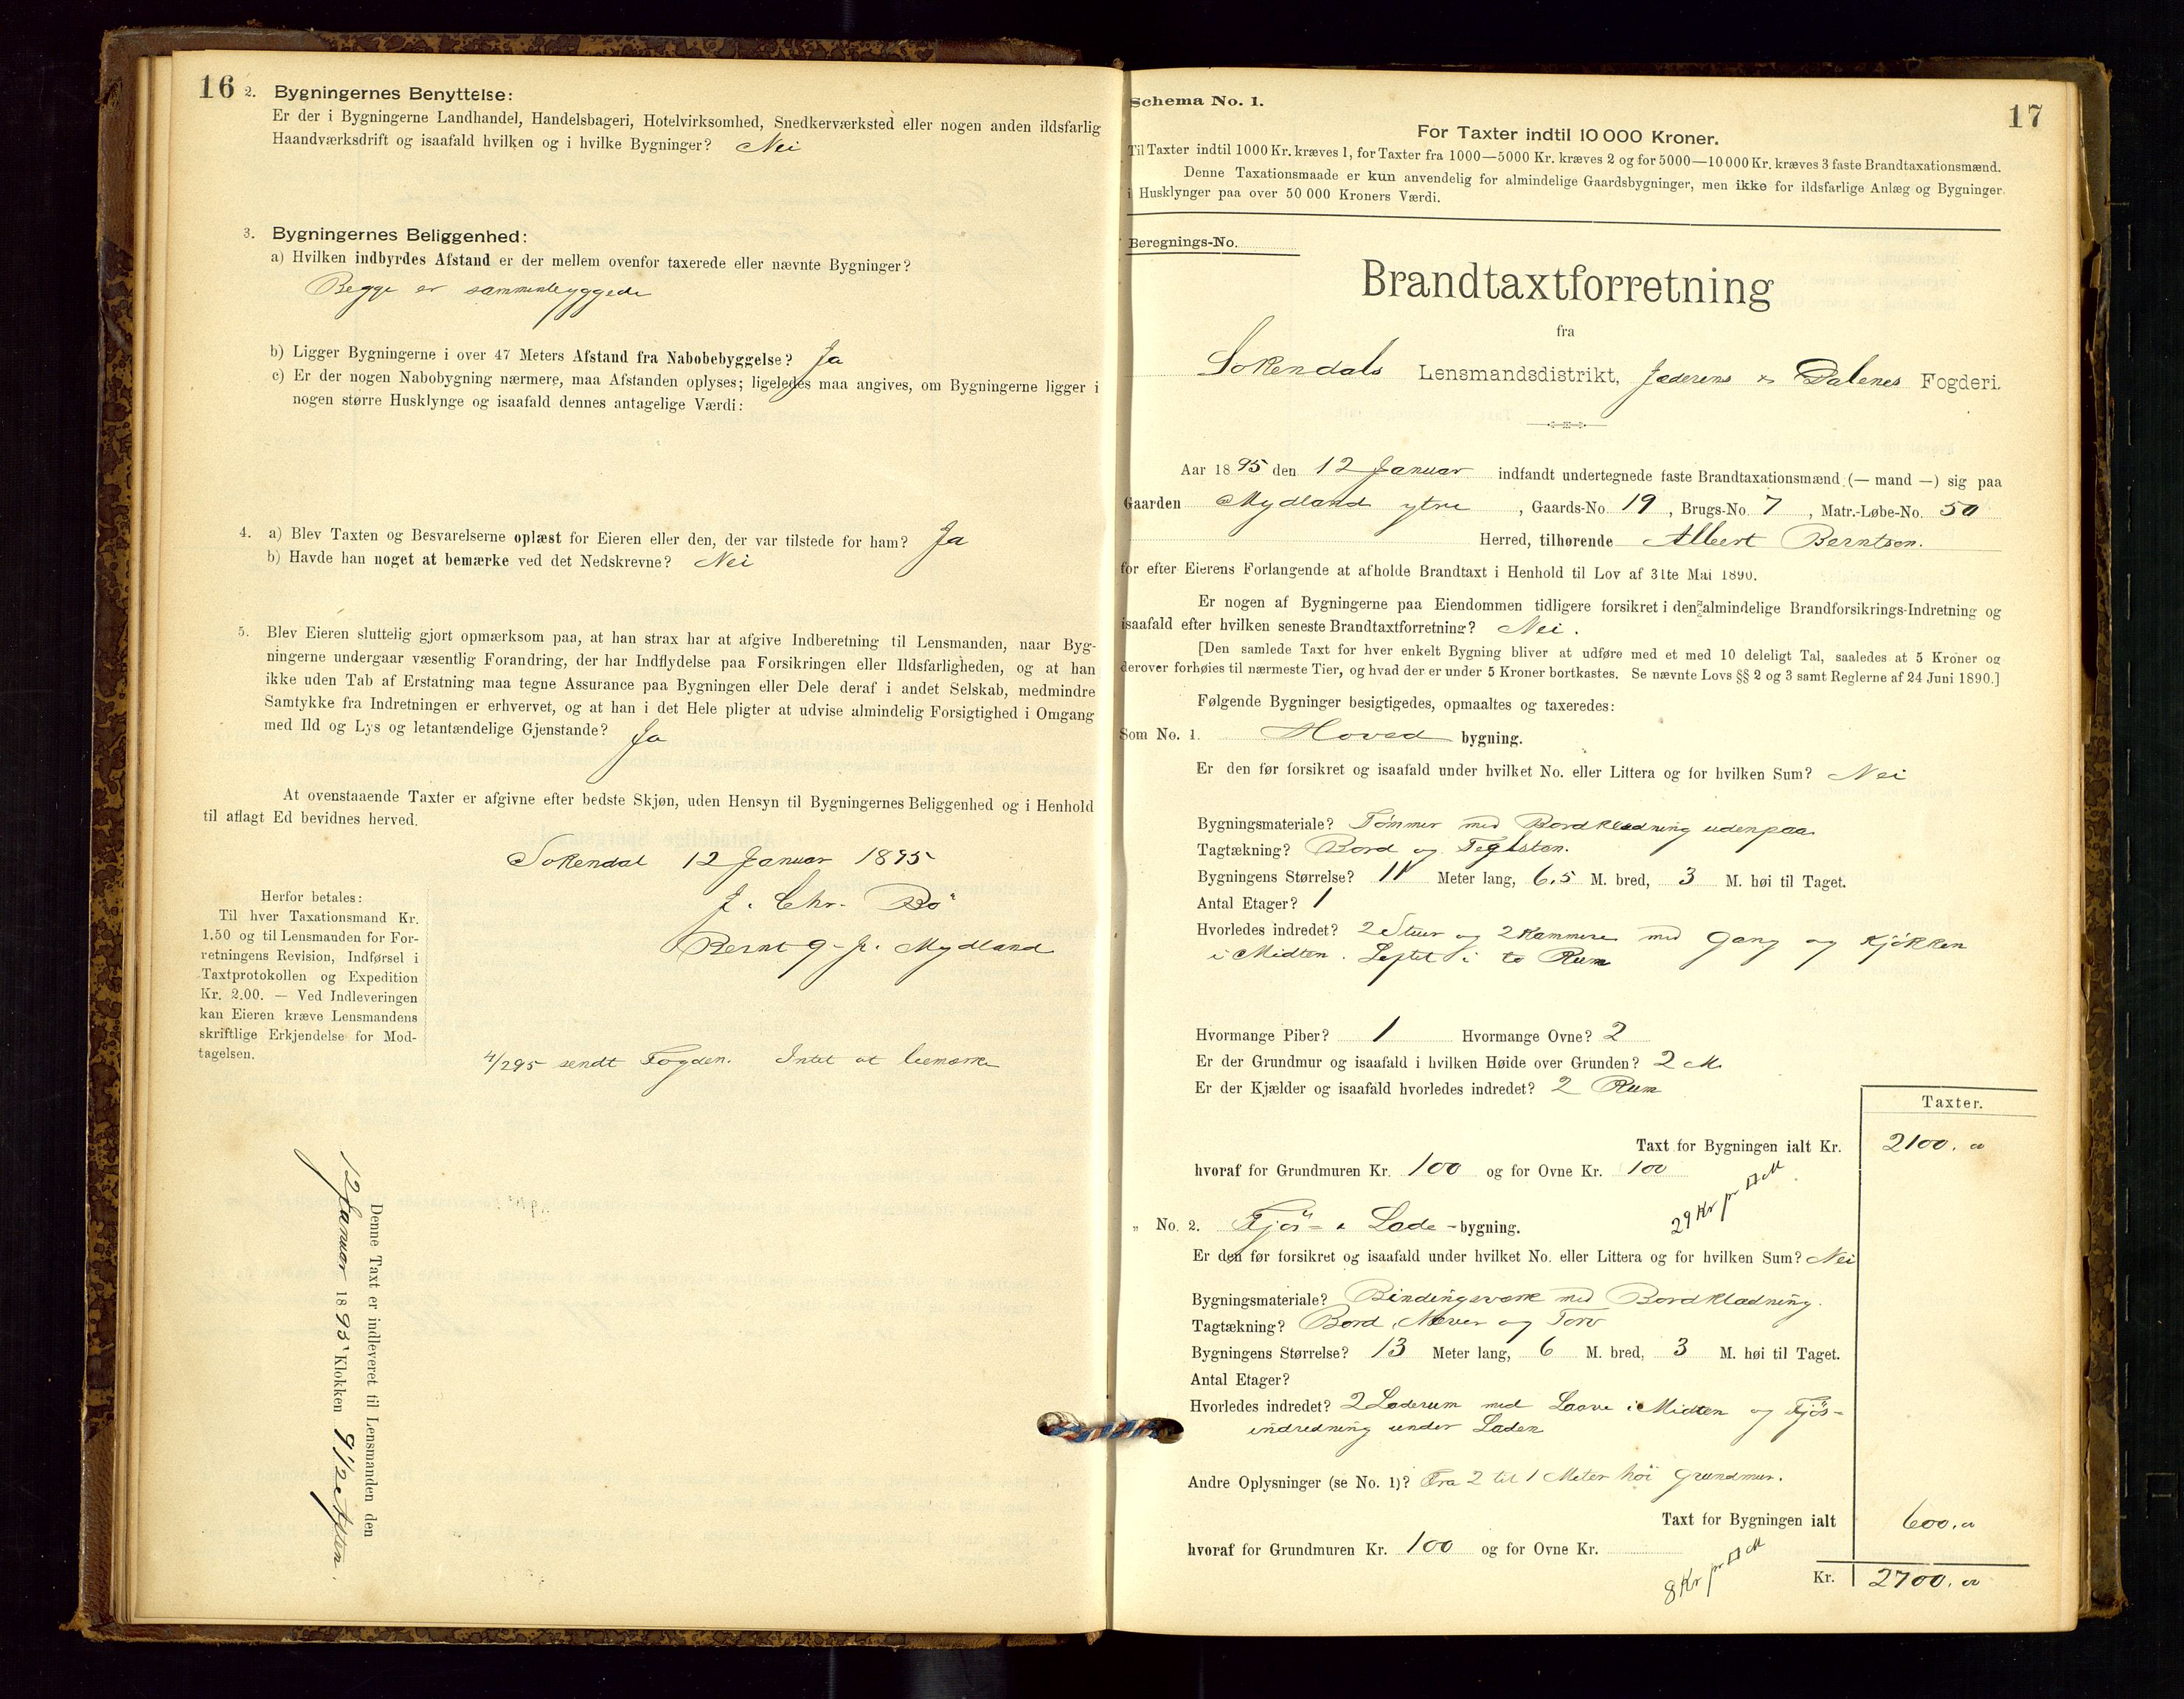 16 2. Bygningernes Benyttelse:
Er der i Bygningerne Landhandel, Handelsbageri, Hotelvirksomhed, Snedkerværksted eller nogen anden ildsfarlig
Haandværksdrift og isaafald hvilken og i hvilke Bygninger? Nei
3. Bygningernes Beliggenhed:
a) Hvilken indbyrdes Afstand er der mellem ovenfor taxerede eller nævnte Bygninger?
Begge er sammenbyggede
b) Ligger Bygningerne i over 47 Meters Afstand fra Nabobebyggelse? Ja
c) Er der nogen Nabobygning nærmere, maa Afstanden oplyses; ligeledes maa angives, om Bygningerne ligger i
nogen større Husklynge og isaafald dennes antagelige Værdi:
4. a) Blev Taxten og Besvarelserne oplæst for Eieren eller den, der var tilstede for ham? Ja
b) Havde han noget at bemærke ved det Nedskrevne? Nei
5. Blev Eieren sluttelig gjort opmærksom paa, at han strax har at afgive Indberetning til Lensmanden, naar Byg-
ningerne undergaar væsentlig Forandring, der har Indflydelse paa Forsikringen eller Ildsfarligheden, og at han
ikke uden Tab af Erstatning maa tegne Assurance paa Bygningen eller Dele deraf i andet Selskab, medmindre
Samtykke fra Indretningen er erhvervet, og at han i det Hele pligter at udvise almindelig Forsigtighed i Omgang
med Ild og Lys og letantændelige Gjenstande? Ja
At ovenstaaende Taxter er afgivne efter bedste Skjøn, uden Hensyn til Bygningernes Beliggenhed og i Henhold
til aflagt Ed bevidnes herved.
Sokendal 12 Januar 1895
J. Chr. Bö
Bernt G-J. Mydland
Herfor betales:
Til hver Taxationsmand Kr.
1.50 og til Lensmanden for For-
retningens Revision, Indførsel i
Taxtprotokollen og Expedition
Kr. 2.00. — Ved Indleveringen
kan Eieren kræve Lensmandens
skriftlige Erkjendelse for Mod-
tagelsen.
4/295 sendt Fogden. Intet at bemærke
Denne Taxt er indleveret til Lensmanden den
12 Januar 1895 Klokken 9 1/2 Aften.
Schema No. 1.
17
For Taxter indtil 10 000 Kroner.
Til Taxter indtil 1000 Kr. kræves 1, for Taxter fra 1000—5000 Kr. kræves 2 og for 5000—10 000 Kr. kræves 3 faste Brandtaxationsmænd.
Denne Taxationsmaade er kun anvendelig for almindelige Gaardsbygninger, men ikke for ildsfarlige Anlæg og Bygninger
i Husklynger paa over 50 000 Kroners Værdi.
Beregnings-No.
Brandtaxtforretning
fra
Sokendals Lensmandsdistrikt, Jæderens & Dalenes Fogderi.
Aar 1895 den 12 Januar indfandt undertegnede faste Brandtaxationsmænd (— mand —) sig paa
Gaarden Mydland ytre, Gaards-No. 19, Brugs-No. 7, Matr.-Løbe-No. 50
Herred, tilhørende Albert Berntsen.
for efter Eierens Forlangende at afholde Brandtaxt i Henhold til Lov af 31te Mai 1890.
Er nogen af Bygningerne paa Eiendommen tidligere forsikret i den almindelige Brandforsikrings-Indretning og
isaafald efter hvilken seneste Brandtaxtforretning? Nei.
[Den samlede Taxt for hver enkelt Bygning bliver at udføre med et med 10 deleligt Tal, saaledes at 5 Kroner og
derover forhøies til nærmeste Tier, og hvad der er under 5 Kroner bortkastes. Se nævnte Lovs §§ 2 og 3 samt Reglerne af 24 Juni 1890.]
Følgende Bygninger besigtigedes, opmaaltes og taxeredes:
Som No. 1. Hoved bygning.
Er den før forsikret og isaafald under hvilket No. eller Littera og for hvilken Sum? Nei
Bygningsmateriale? Tømmer med Bordklædning udenpaa
Tagtækning? Bord og Teglsten.
Bygningens Størrelse? 11 Meter lang, 6,5 M. bred, 3 M. høi til Taget.
Antal Etager? 1
Hvorledes indredet? 2 Stuer og 2 Kammere med Gang og Kjøkken
i Midten. Loftet i to Rum
Hvormange Piber? 1 Hvormange Ovne? 2
Er der Grundmur og isaafald i hvilken Høide over Grunden? 2 M
Er der Kjælder og isaafald hvorledes indredet? 2 Rum
Taxter.
Taxt for Bygningen ialt Kr. 2100.
hvoraf for Grundmuren Kr. 100 og for Ovne Kr. 100
29 Kr pr □ M
" No. 2. Fjös- & Lade-bygning.
Er den før forsikret og isaafald under hvilket No. eller Littera og for hvilken Sum? Nei
Bygningsmateriale? Bindingsværk med Bordklædning.
Tagtækning? Bord, Næver og Torv
Bygningens Størrelse? 13 Meter lang, 6 M. bred, 3 M. høi til Taget.
Antal Etager?
Hvorledes indredet? 2 Laderum med Laave i Midten og Fjös-
indredning under Laden
Andre Oplysninger (se No. 1)? Fra 2 til 1 Meter höi Grundmur.
Taxt for Bygningen ialt 600.
hvoraf for Grundmuren Kr. 100 og for Ovne Kr.
8 Kr pr □ M
Kr. 2700.